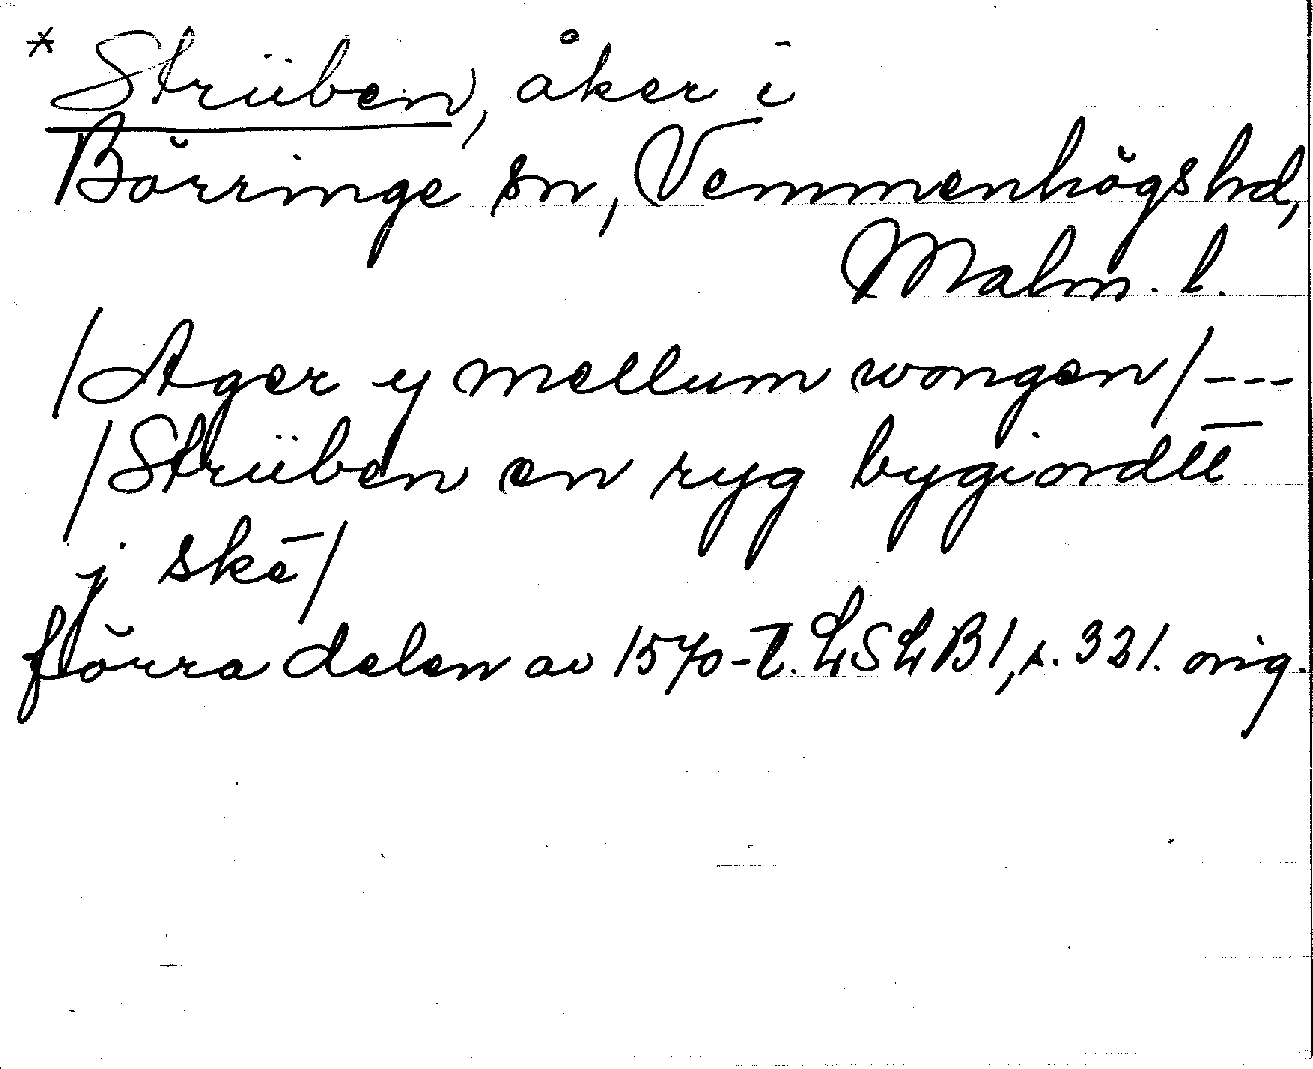 * Strüben, åker i
Börringe sn, Vemmenhögs hd,
Malm. l.
/Ager y mellum wongen/ ---
/Strüben en ryg bygiordtt
j skē/
förra delen av 1570-t. LSLB1, s. 321. orig.